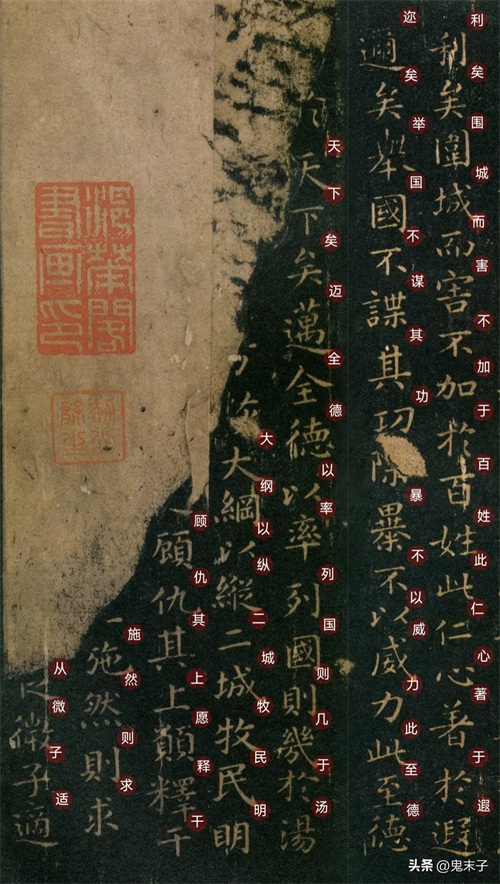 利矣围城而害不加于百姓此仁心著于遐
利矣圍城而害不加於百姓此仁心著於遐
迩矣举国不谋其功暴不以威力此至德
邇矣舉國不謀其功除暴不以威力此至德
天下矣迈全德以率列国则几于汤
天下矣邁全德以率列國則幾於湯
大纲以纵二城牧民明
大綱以縱二城牧民明
顾仇其上愿释干
顧仇其上願釋干
施然则求
施然則求
从微子适
微子適
头条 @鬼末子